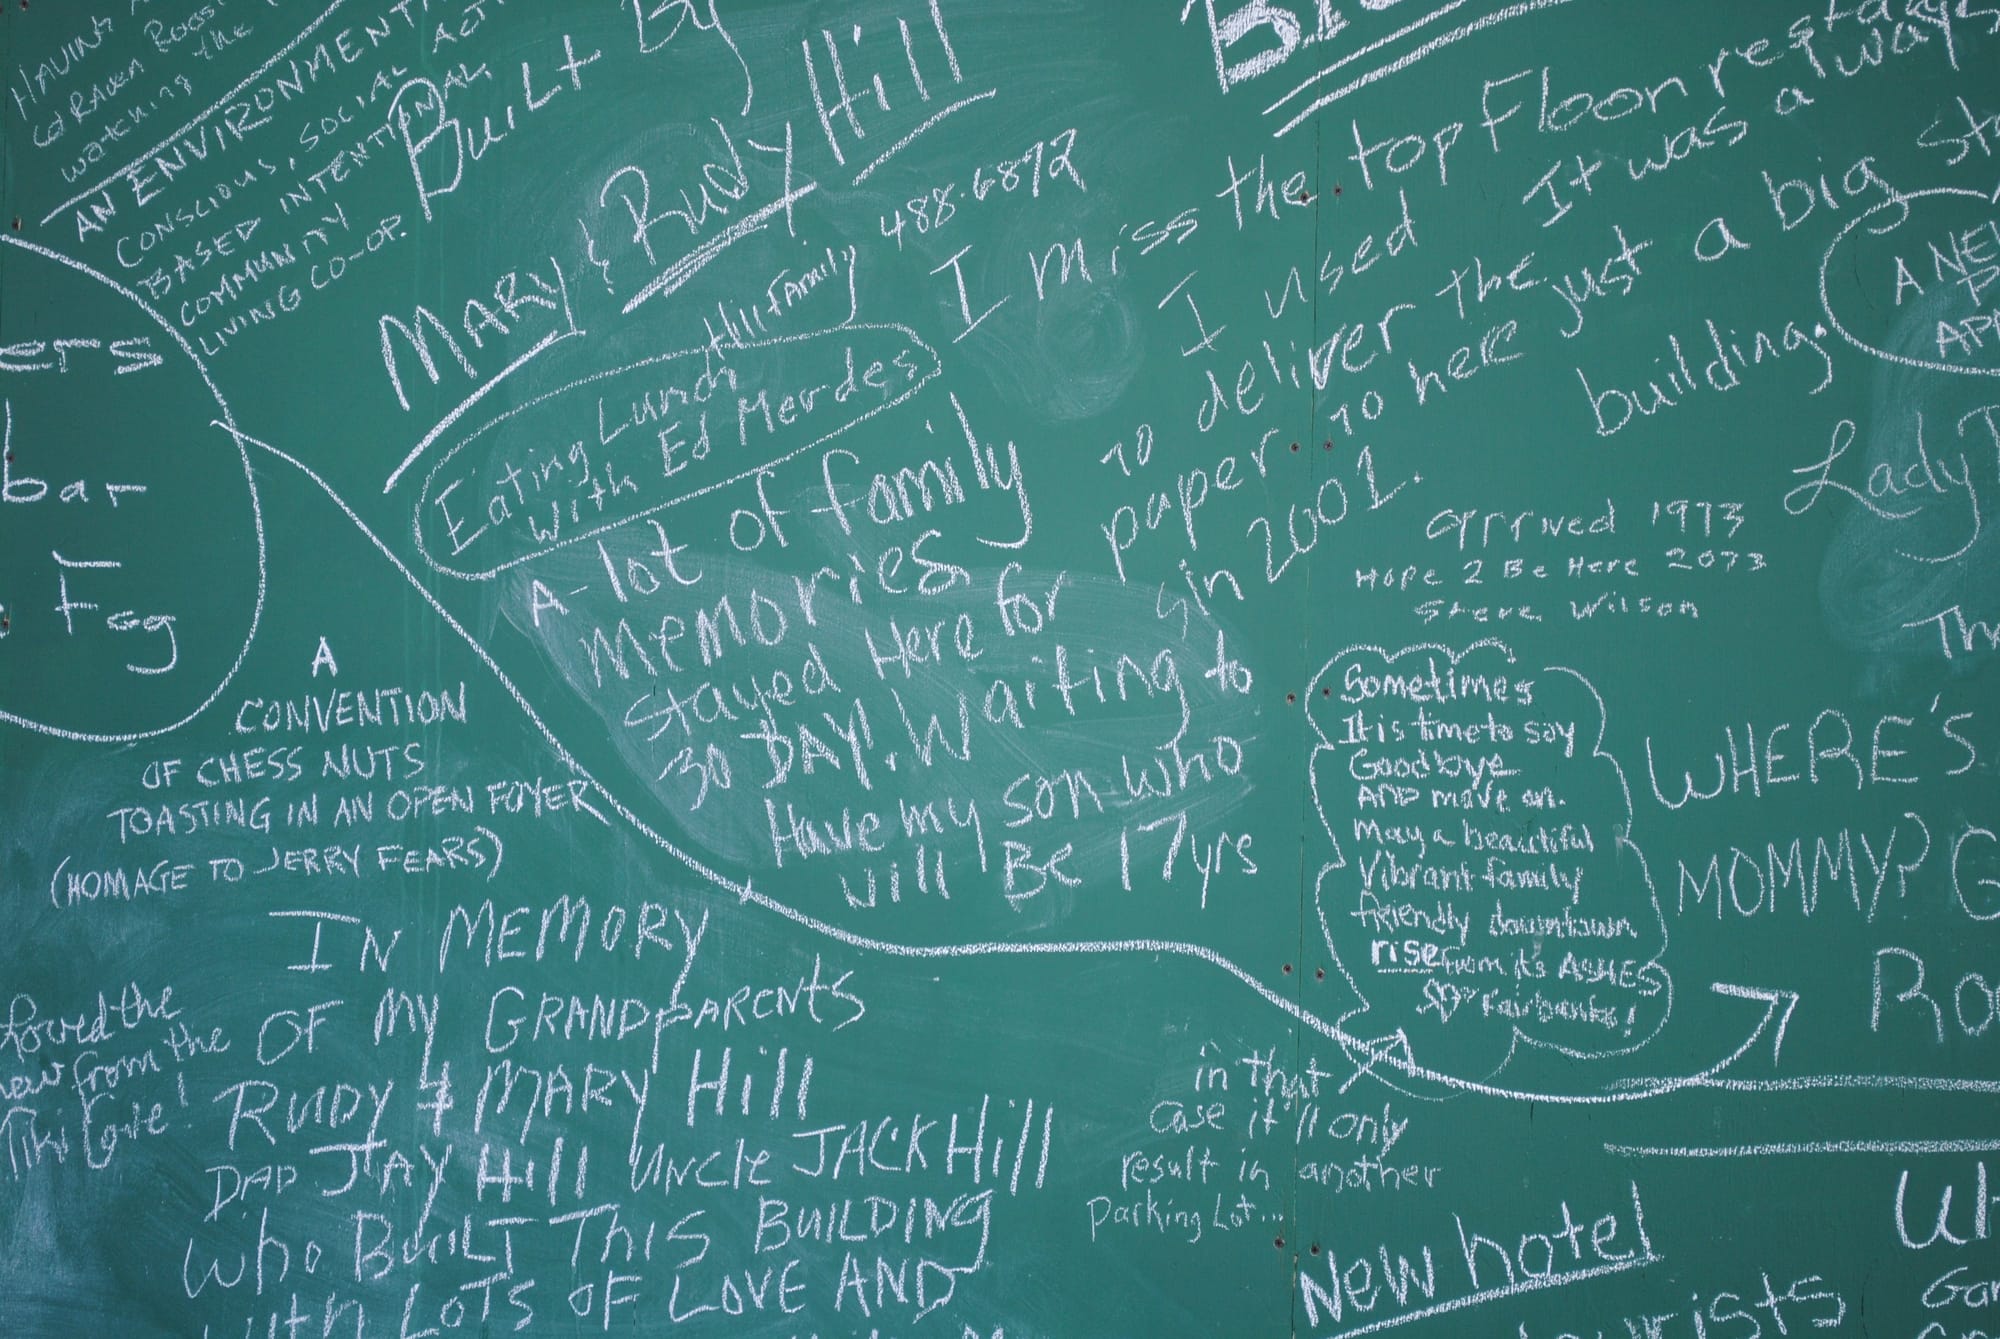 HAVING
watching the
AN ENVIRONMENT
CONSCIOUS, SOCIAL ACT
BASED INTENTIONAL
COMMUNITY
LIVING CO-OP.
Built by
MARY & Rudy Hill
488-6872
Hill Family
Eating Lunch
with Ed Merdes
A-lot of family
memories
stayed Here for
30 DAY! Waiting to
Have my son who
will Be 17yrs
I miss the top Floor
I used
to deliver the
paper to here
in 2001.
It was always
just a big
building.
A NEW
Lady
arrived 1973
Hope 2 Be Here 2073
Steve Wilson
ers
bar
Fgg
A
CONVENTION
OF CHESS NUTS
TOASTING IN AN OPEN FOYER
(HOMAGE TO JERRY FEARS)
IN MEMORY
OF MY GRANDPARENTS
RUDY & MARY Hill
DAD JAY Hill UNCLE JACK Hill
who BUILT THIS BUILDING
with LOTS OF LOVE AND
loved the
from the
Sometimes
It is time to say
Goodbye
AND move on.
May a beautiful
Vibrant family
friendly downtown
rise from its ASHES
Fairbanks!
in that
case it'll only
result in another
Parking Lot...
WHERE'S
MOMMY? G
New hotel